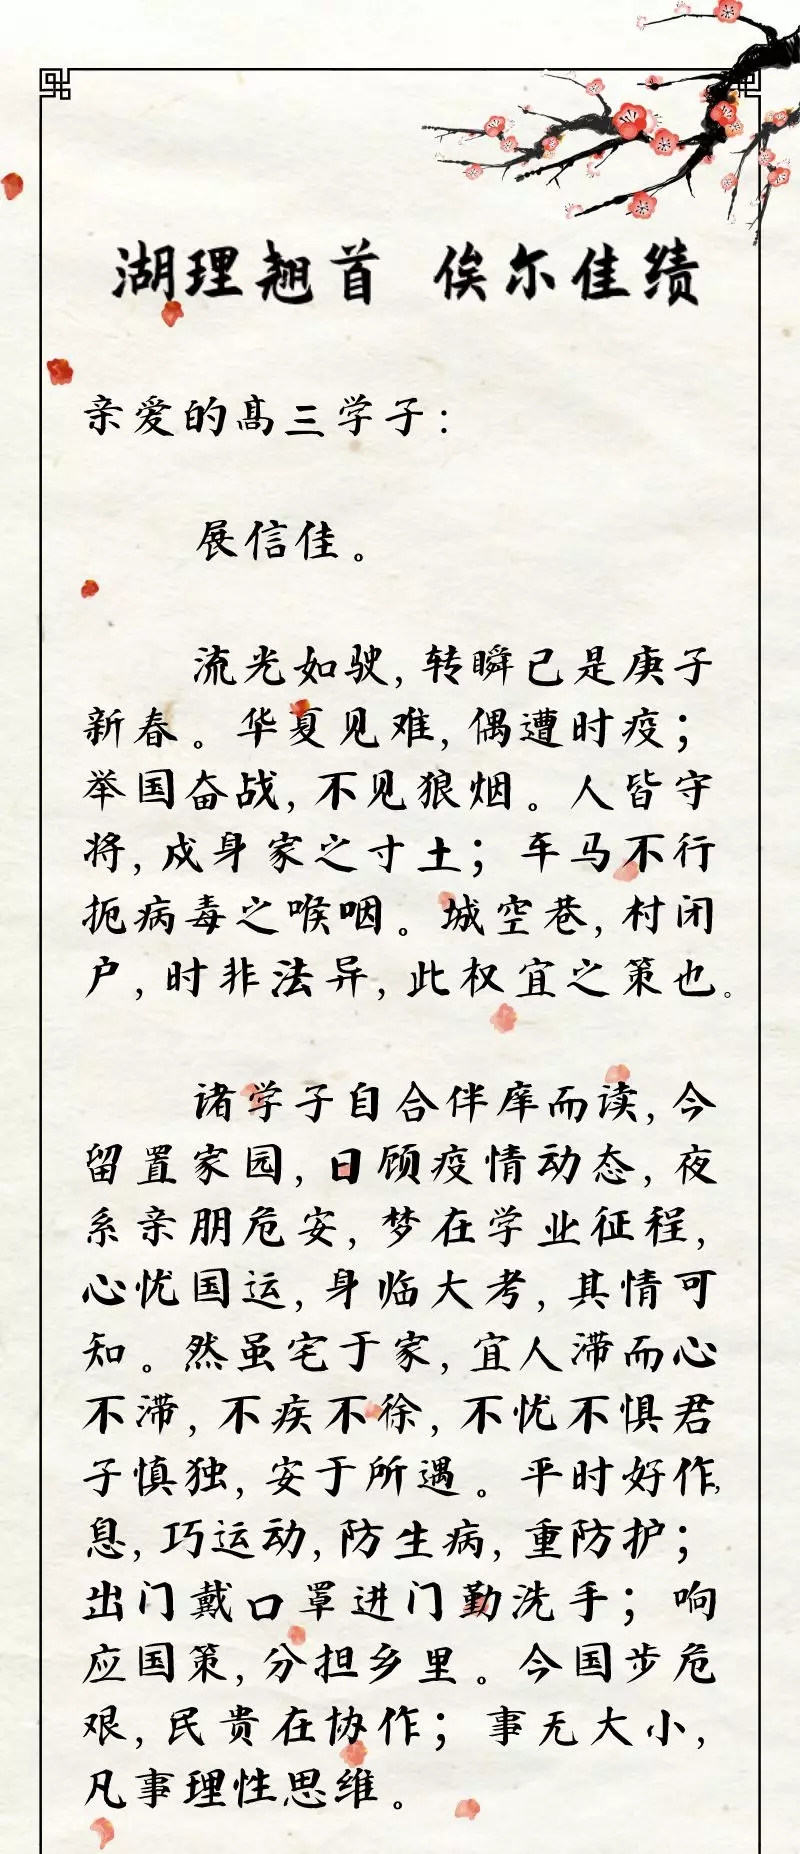 湖理翘首 俟尔佳绩
亲爱的高三学子：
展信佳。
流光如驶，转瞬已是庚子
新春。华夏见难，偶遭时疫；
举国奋战，不见狼烟。人皆守
将，戍身家之寸土；车马不行
扼病毒之喉咽。城空巷，村闭
户，时非法异，此权宜之策也。
诸学子自合伴庠而读，今
留置家园，日顾疫情动态，夜
系亲朋危安，梦在学业征程，
心忧国运，身临大考，其情可
知。然虽宅于家，宜人滞而心
不滞，不疾不徐，不忧不惧君
子慎独，安于所遇。平时好作
息，巧运动，防生病，重防护；
出门戴口罩进门勤洗手；响
应国策，分担乡里。今国步危
艰，民贵在协作；事无大小，
凡事理性思维。